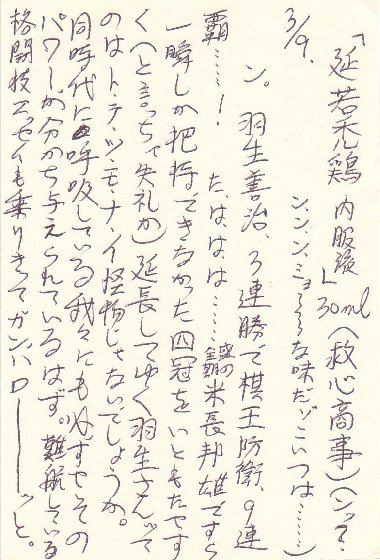 3/9.
「延若禿鶏 内服液」30ml(救心商事)ヘンッテコ
ン、ン、ン、ミョ〜〜〜な味だゾこいつは……)
ン。 羽生善治、3連勝で棋王防衛、9連
覇……! た、は、は、は……全盛期の米長邦雄ですら
一瞬しか把持できなかった四冠をいともたやす
く(と言っちゃ失礼か)延長してゆく羽生さんって
のはト・テ・ツ・モ・ナ・イ怪物じゃないでしょうか。
同時代に呼吸している我々にも必ずやその
パワーが分かち与えられているはず。難航している
格闘技エッセイも乗りきってガンバロ———ッと。